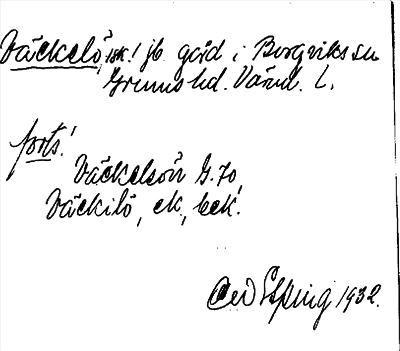 Väckelö, isk! jb gård i Borgviks sn
Grums hd. Värml. L.
forts!
Väckelsön G. 70
Väckilö, ek, beck!
Ced Esping 1932.